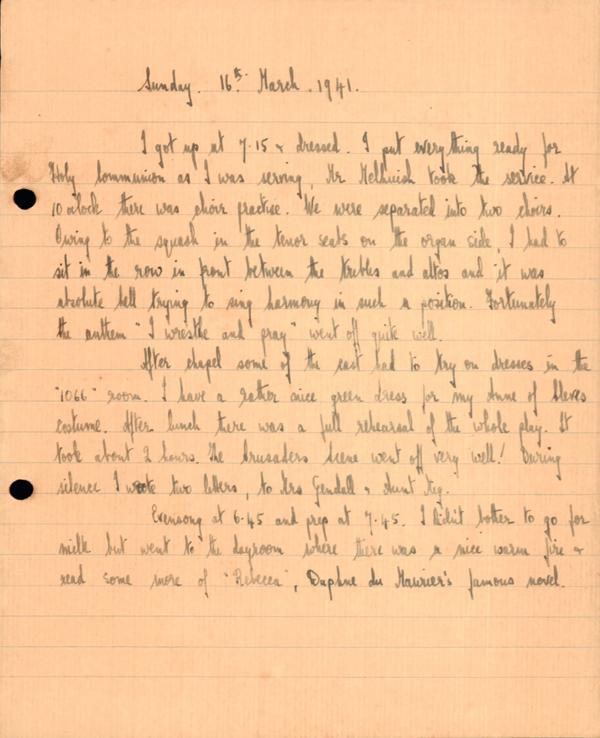 Sunday. 16th March. 1941.
I got up at 7.15 & dressed. I put everything ready for
Holy Communion as I was serving, Mr Melhuish took the service. At
10 o'clock there was choir practise. We were separated into two choirs.
Owing to the squash in the tenor seats on the organ side, I had to
sit in the row in front between the trebles and altos and it was
absolute hell trying to sing harmony in such a position. Fortunately
the anthem "I wrestle and pray" went off quite well.
After chapel some of the cast had to try on dresses in the
"1066" room. I have a rather nice green dress for my Anne of Cleves
costume. After lunch there was a full rehearsal of the whole play. It
took about 2 hours. The Crusaders Scene went off very well! During
silence I wrote two letters, to Mrs Gendall & Aunt Reg.
Evensong at 6.45 and prep at 7.45. I didn't bother to go for
milk but went to the dayroom where there was a nice warm fire &
read some more of "Rebecca", Daphne du Maurier's famous novel.